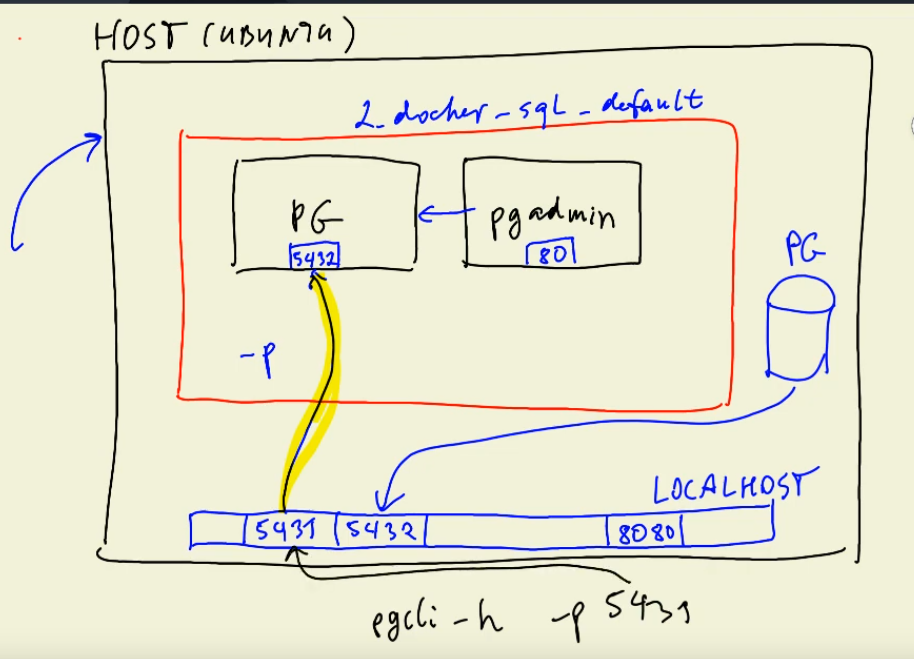 HOST (UBUNTU)
2_docker-sql_default
PG
pgadmin
5432
80
PG
-p
LOCALHOST
5431
5432
8080
pgcli -h -p 5431